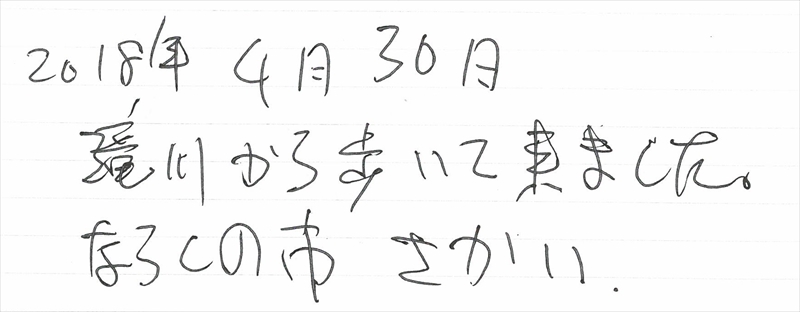 2018年 4月 30日
川から歩いて来ました。
ならしの市 さかい.